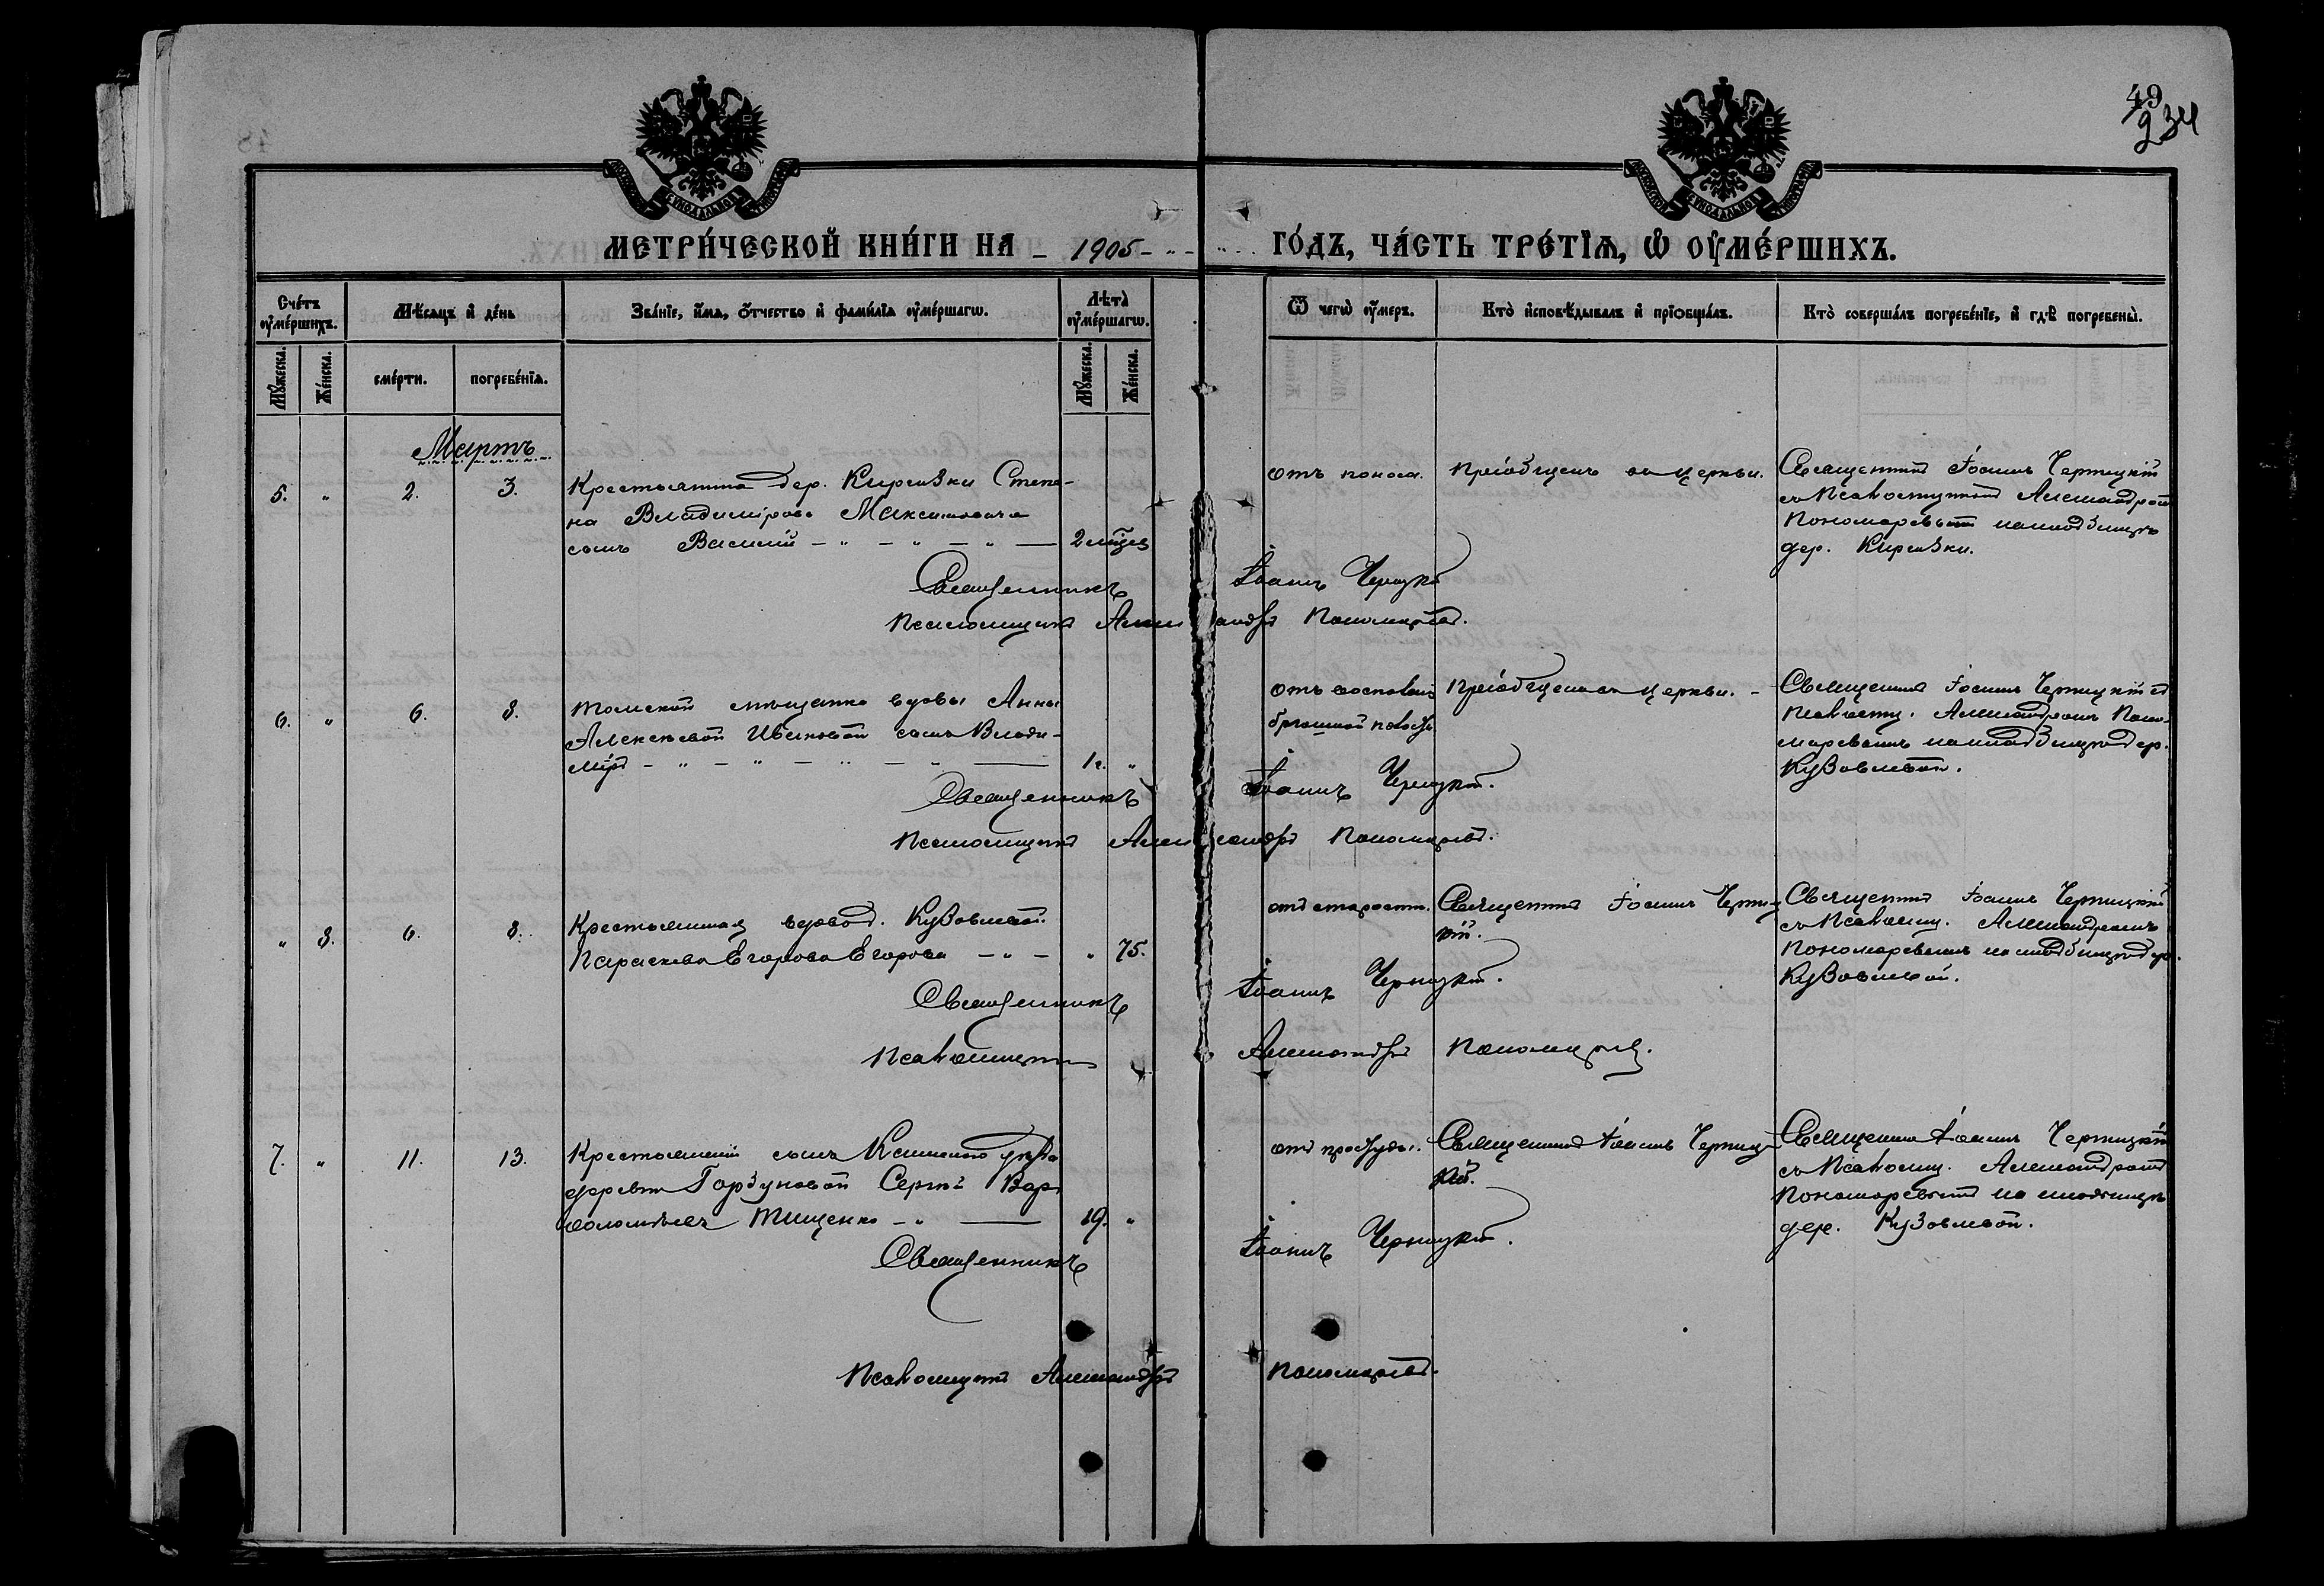 49
234
МЕТРИ́ЧЕСКОЙ КНИ́ГИ НА 1905 ГО́ДЪ, ЧА́СТЬ ТРЕ́ТІѦ, Ѡ҆ ОУ҆МЕ́РШИХЪ.
Сче́тъ оу҆ме́ршихъ.
Мѣ́сяцъ и҆ де́нь
Зва́нїе, и҆́мѧ, ѻ҆́тчество и҆ фами́лїѧ оу҆ме́ршагѡ.
Лѣ́та оу҆ме́ршагѡ.
Ѿ чегѡ̀ оу҆́меръ.
Кто̀ и҆сповѣ́дывалъ и҆ прїѡбща́лъ.
Кто̀ соверша́лъ погребе́нїе, и҆ гдѣ̀ погребены̀.
Мꙋ́жеска.
Же́нска.
сме́рти.
погребе́нїѧ.
Мꙋ́жеска.
Же́нска.
Мартъ
5. " 2. 3.
Крестьянина дер. Киреевки Степа-
на Владимірова Максимовича
сынъ Василій - " - " - " - 2 мѣсяц
отъ поноса.
Пріобщенъ въ церкви.
Священникъ Іоаннъ Черницкій
съ Псаломщикомъ Александромъ
Пономаревымъ на кладбищѣ
дер. Киреевки.
Священникъ Іоаннъ Черницкій
Псаломщикъ Александръ Пономаревъ.
6. " 6. 8.
Томской мѣщанки вдовы Анны
Алексѣевой Ивановой сынъ Влади-
міръ - " - " - " - " - 1 г. "
отъ воспаленія
брюшной полости
Пріобщенъ въ церкви. -
Священникъ Іоаннъ Черницкій съ
Псаломщ. Александромъ Поно-
маревымъ на кладбищѣ дер.
Кузовлевой.
Священникъ Іоаннъ Черницкій.
Псаломщикъ Александръ Пономаревъ.
" 8. 6. 8.
Крестьянская вдова д. Кузовлевой
Параскева Егорова Егорова - " - " 75.
отъ старости.
Священникъ Іоаннъ Черниц-
кій.
Священникъ Іоаннъ Черницкій
съ Псаломщ. Александромъ
Пономаревымъ на кладбищѣ дер.
Кузовлевой.
Священникъ Іоаннъ Черницкій.
Псаломщикъ Александръ Пономаревъ.
7. " 11. 13.
Крестьянскій сынъ Каинскаго уѣзда
деревни Горбуновой Сергѣй Вар-
ѳоломѣевъ Тищенко - " - 19. "
отъ простуды.
Священникъ Іоаннъ Черниц-
кій.
Священникъ Іоаннъ Черницкій
съ Псаломщ. Александромъ
Пономаревымъ на кладбищѣ
дер. Кузовлевой.
Священникъ Іоаннъ Черницкій.
Псаломщикъ Александръ Пономаревъ.